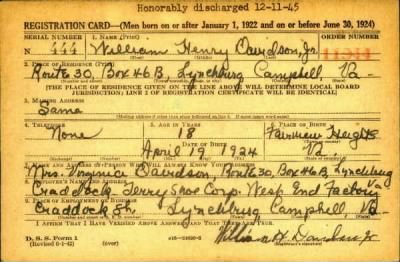 Honorably discharged 12-11-45
REGISTRATION CARD—(Men born on or after January 1, 1922 and on or before June 30, 1924)
SERIAL NUMBER 1. NAME (Print) ORDER NUMBER
N 444 William Henry Davidson Jr.
2. PLACE OF RESIDENCE (Print)
Route 30, Box 46B, Lynchburg Campbell Va-
(THE PLACE OF RESIDENCE GIVEN ON THE LINE ABOVE WILL DETERMINE LOCAL BOARD
JURISDICTION; LINE 2 OF REGISTRATION CERTIFICATE WILL BE IDENTICAL)
3. MAILING ADDRESS
Same
4. TELEPHONE 5. AGE IN YEARS 6. PLACE OF BIRTH
None 18 Fairview Heights
April 19 1924 Va.
7. NAME AND ADDRESS OF PERSON WHO WILL ALWAYS KNOW YOUR ADDRESS
Mrs. Virginia Davidson, Route 30, Box 46B, Lynchburg Va
Craddock Terry Shoe Corp. West End Factory
Craddock St. Lynchburg Campbell Va-
I AFFIRM THAT I HAVE VERIFIED ABOVE ANSWERS AND THAT THEY ARE TRUE.
D. S. S. Form 1
(Revised 6-1-42)
William H Davidson Jr